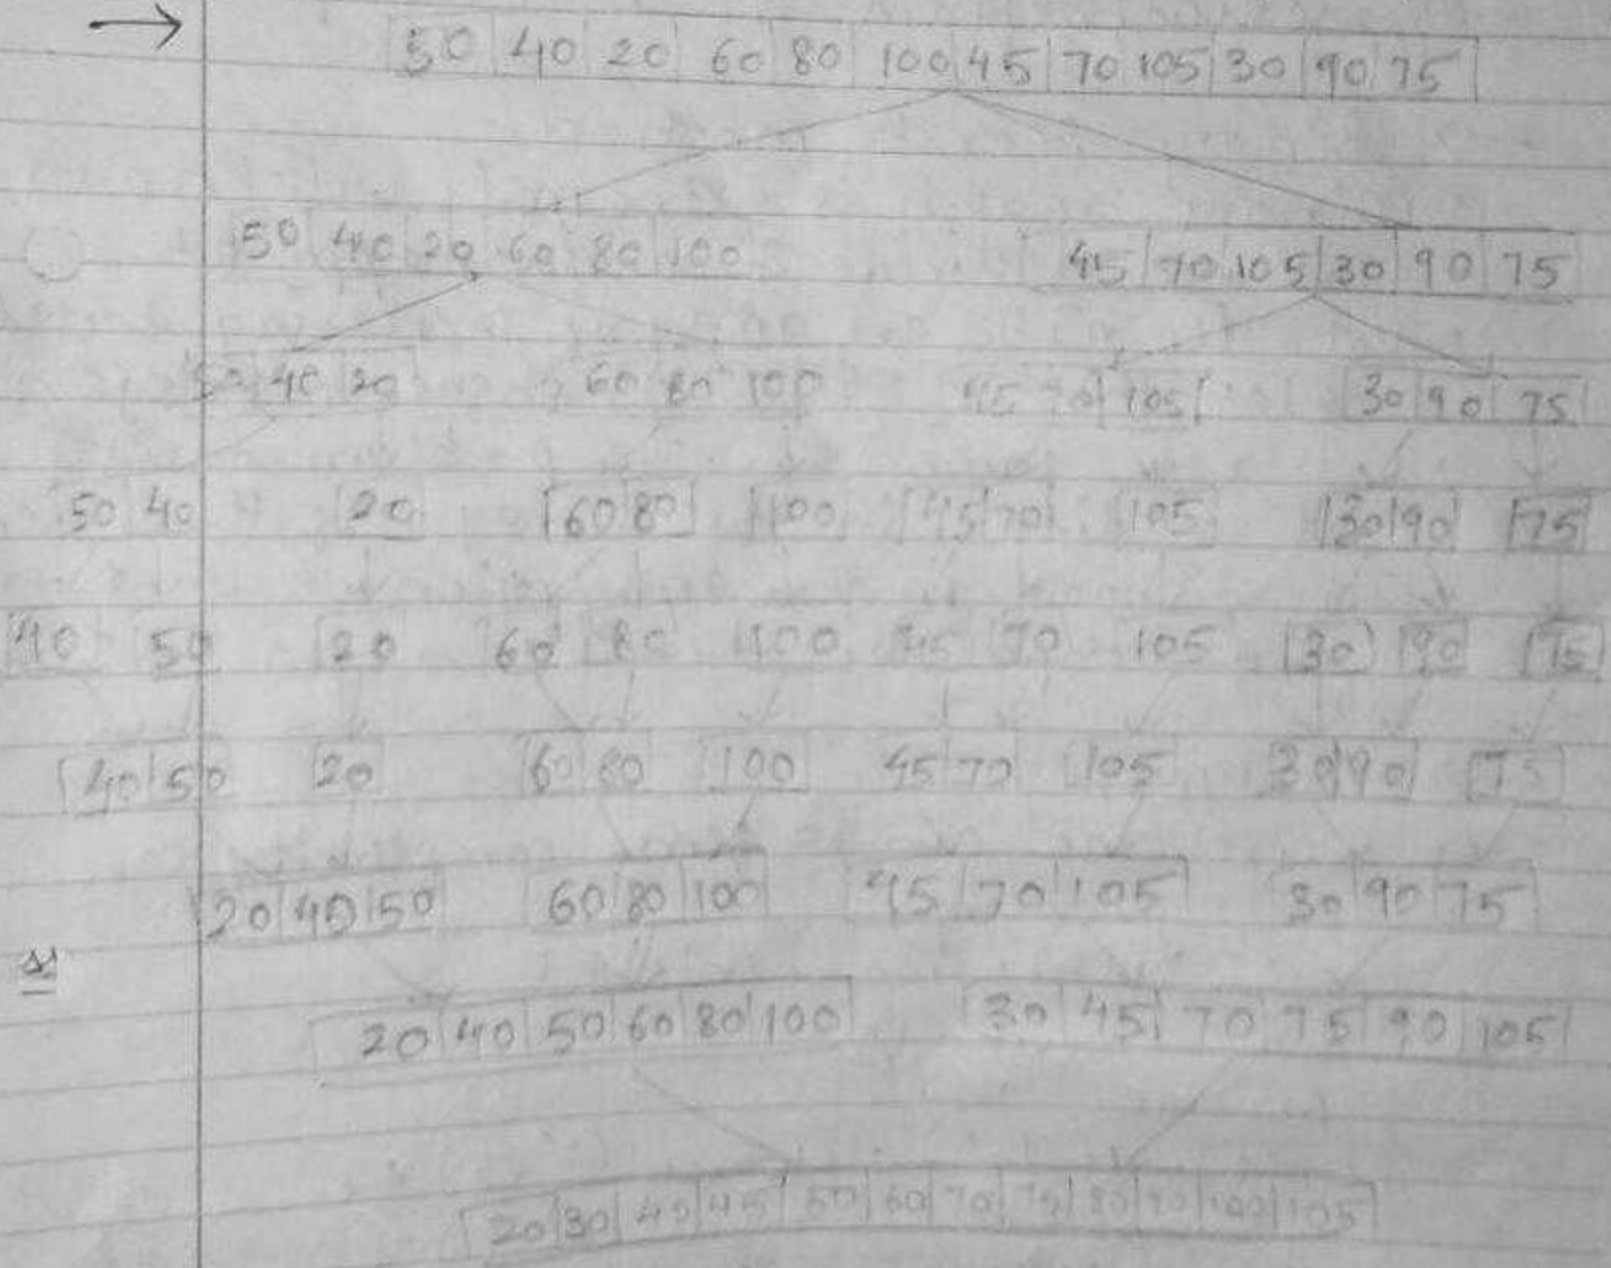 50 40 20 60 80 100 45 70 105 30 90 75
50 40 20 60 80 100 45 70 105 30 90 75
50 40 20 60 80 100 45 70 105 30 90 75
50 40 20 60 80 100 45 70 105 30 90 75
40 50 20 60 80 100 45 70 105 30 90 75
40 50 20 60 80 100 45 70 105 30 90 75
20 40 50 60 80 100 45 70 105 30 90 75
20 40 50 60 80 100 30 45 70 75 90 105
20 30 40 45 50 60 70 75 80 90 100 105